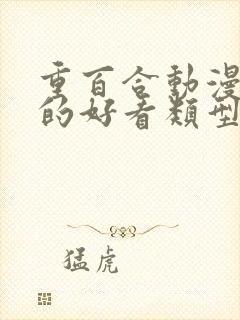 重百合動漫
的好看類型
猛虎